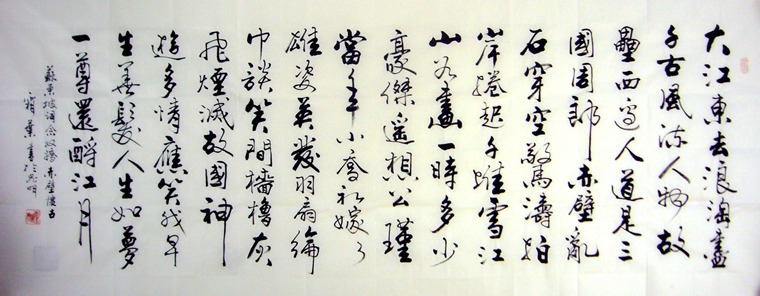 大江東去浪淘盡
千古風流人物故
壘西邊人道是三
國周郎赤壁亂
石穿空驚濤拍
岸捲起千堆雪江
山如畫一時多少
豪傑遙想公瑾
當年小喬初嫁了
雄姿英發羽扇綸
巾談笑間檣櫓灰
飛煙滅故國神
遊多情應笑我早
生華髮人生如夢
一尊還酹江月
蘇東坡詞念奴嬌赤壁懷古
葉書於昆明